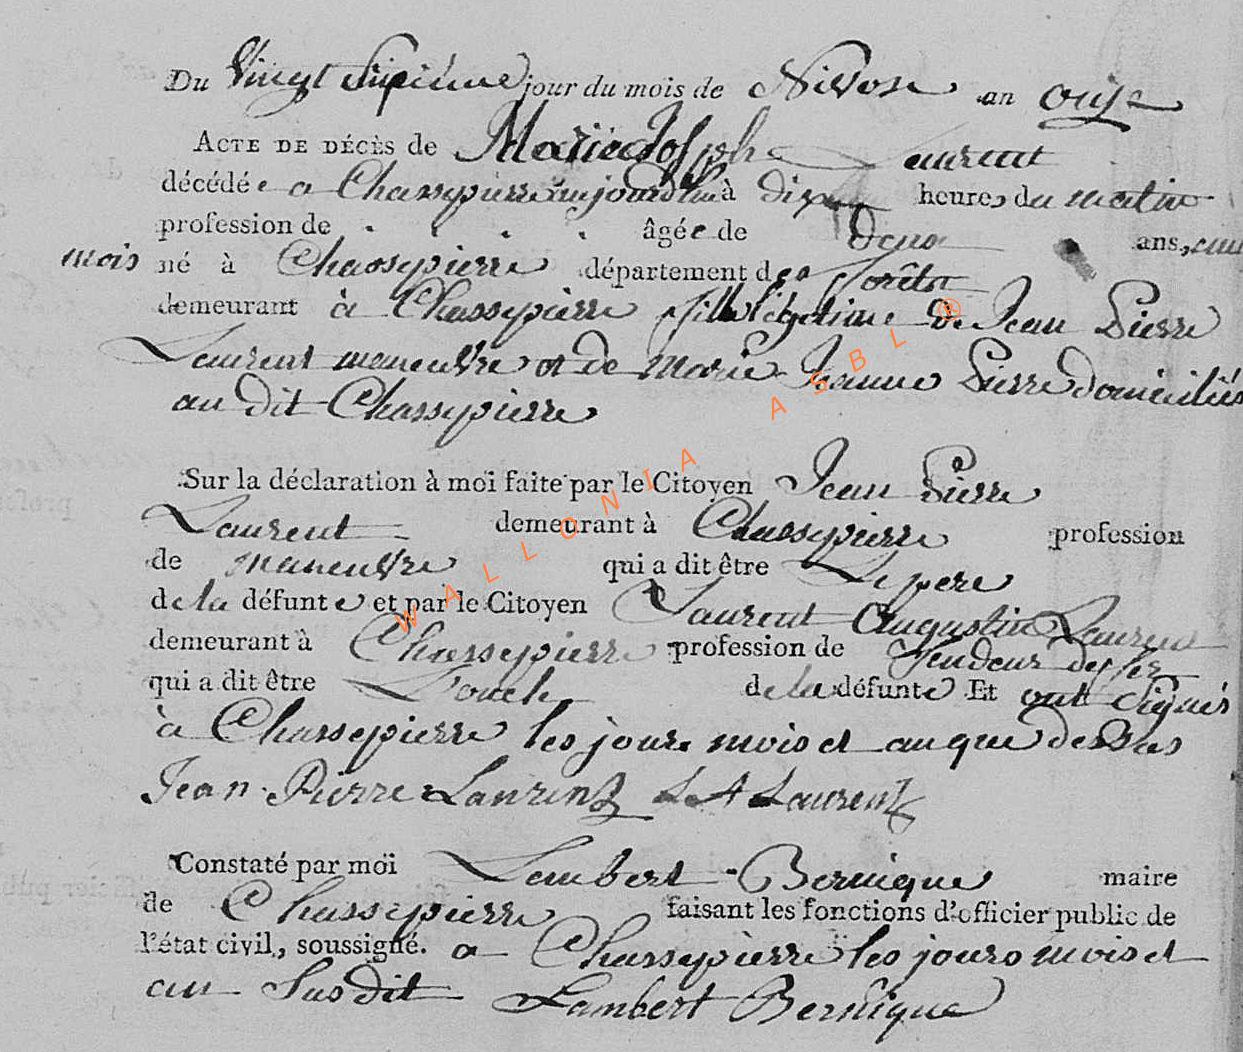 Du Vingt Sixième jour du mois de Nivose an onze
ACTE DE DÉCÈS de Marie Joseph Laurent
décédée a Chassepierre aujourd'hui à dix heures du matin
profession de . . . . âgée de deux ans, cinq
mois né à Chassepierre département des forêts
demeurant à Chassepierre fille légitime de Jean Pierre
Laurent maneuvre et de Marie Jeanne Pierre domiciliés
au dit Chassepierre
Sur la déclaration à moi faite par le Citoyen Jean Pierre
Laurent demeurant à Chassepierre profession
de maneuvre qui a dit être Le pere
de la défunte et par le Citoyen Laurent Augustin Laurent
demeurant à Chassepierre profession de fendeur de fer
qui a dit être L'oncle de la défunte Et ont signés
à Chassepierre les jour mois et an que dessus
Jean Pierre Laurent L A Laurent
Constaté par moi Lambert Bernique maire
de Chassepierre faisant les fonctions d'officier public de
l'état civil, soussigné. a Chassepierre les jours mois et
an Susdit Lambert Bernique
WALLONIA ASBL ®